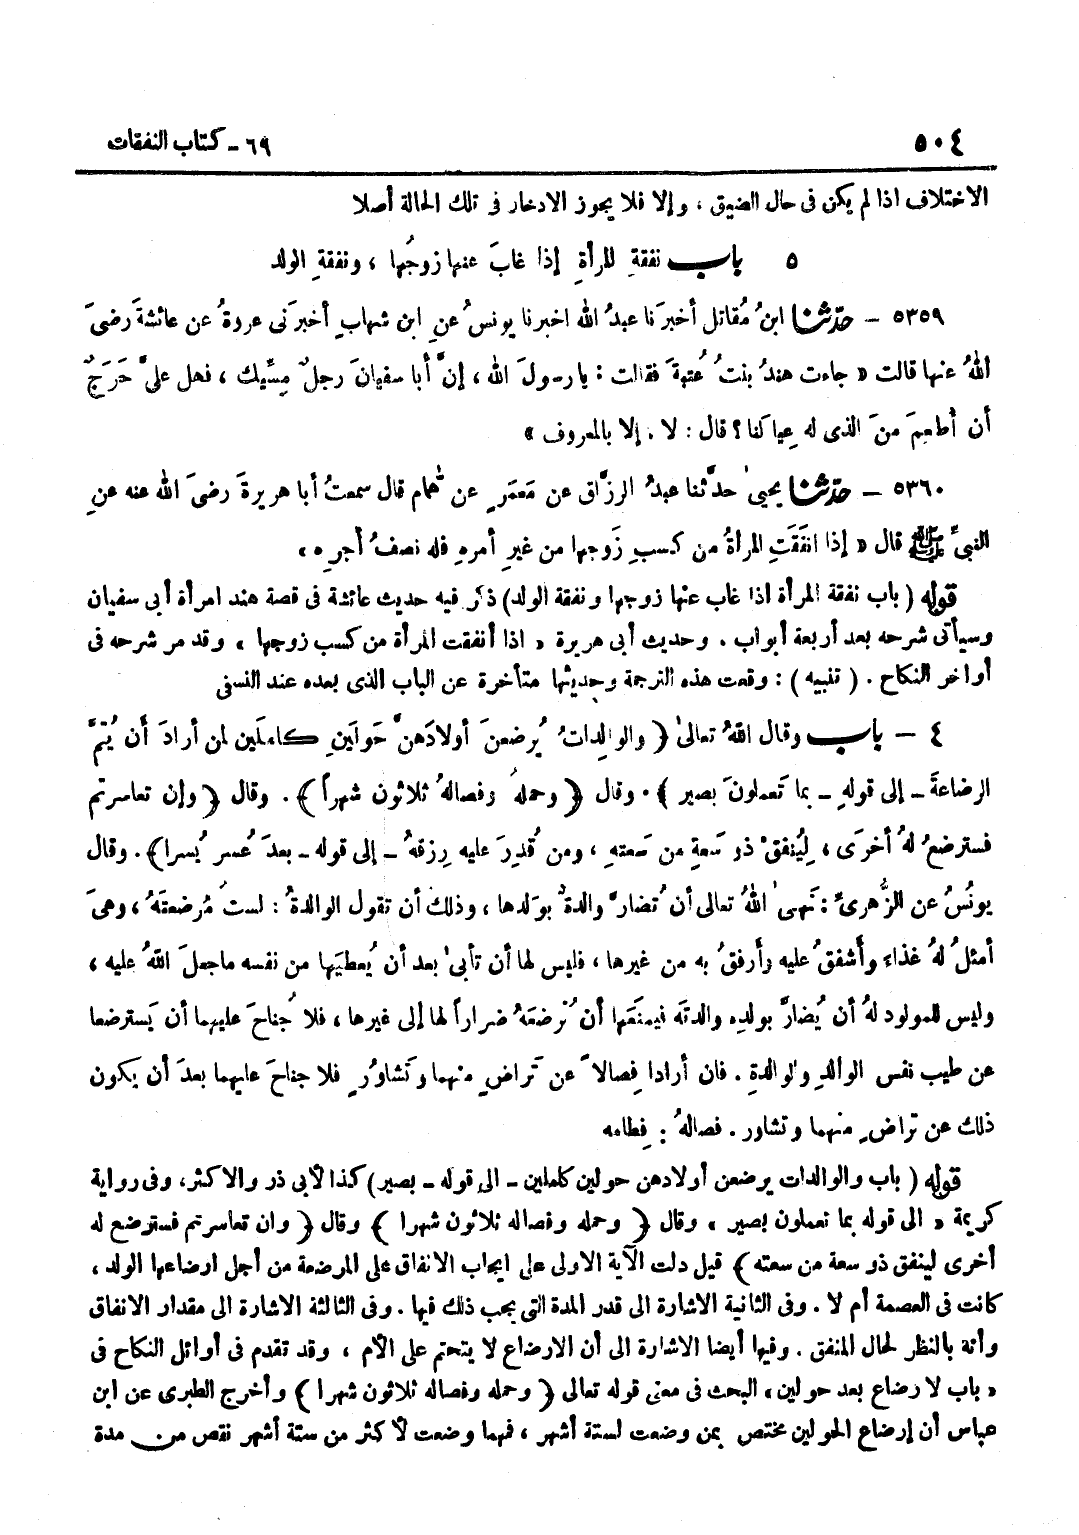 ٥٠٤ ٦٩ - كتاب النفقات
الاختلاف اذا لم يكن فى حال الضيق ، وإلا فلا يجوز الادخار فى تلك الحالة أصلا
٥ باب نفقةِ المرأةِ إذا غابَ عنها زوجُها ، ونفقةِ الولد
٥٣٥٩ - حدّثنا ابنُ مُقاتل أخبرَنا عبدُ الله اخبرنا يونسُ عنِ ابن شهابٍ أخبرَنى عروةُ عن عائشةَ رضىَ
اللهُ عنها قالت « جاءت هندُ بنتُ عُتبةَ فقالت : يارسولَ الله ، إنَّ أبا سفيانَ رجلٌ مِسِّيك ، فهل علىَّ حَرَجٌ
أن أُطعِمَ منَ الذى له عِيالَنا ؟ قال : لا . إلا بالمعروف »
٥٣٦٠ - حدّثنا يحيىٰ حدَّثنا عبدُ الرزَّاق عن مَعمَرٍ عن همّام قال سمعتُ أبا هريرةَ رضىَ الله عنه عنِ
النبىِّ ﷺ قال « إذا انفَقَتِ المرأةُ من كسبِ زَوجِها من غيرِ أمرهِ فله نصفُ أجرِه »
قوله ( باب نفقة المرأة اذا غاب عنها زوجها ونفقة الولد) ذكر فيه حديث عائشة فى قصة هند امرأة أبى سفيان
وسيأتى شرحه بعد أربعة أبواب . وحديث أبى هريرة « اذا أنفقت المرأة من كسب زوجها » وقد مر شرحه فى
أواخر النكاح . ( تنبيه ) : وقعت هذه الترجمة وحديثها متأخرة عن الباب الذى بعده عند النسفى
٤ - باب وقال اللهُ تعالىٰ ﴿ والوالداتُ يُرضعنَ أولادَهنَّ حَولَينِ كاملَين لمن أرادَ أن يُتمَّ
الرضاعةَ - إلى قولهِ - بما تَعملونَ بصير ﴾ . وقال ﴿ وحملهُ وفصالهُ ثلاثون شهراً ﴾ . وقال ﴿ وإن تعاسرتم
فسترضعُ لهُ أخرَى ، لِيُنفقْ ذو سَعةٍ من سَعتهِ ، ومن قُدِرَ عليه رِزقهُ - إلى قوله - بعدَ عُسرٍ يُسرا ﴾ . وقال
يونُسُ عن الزُّهرىِّ : نَهىٰ اللهُ تعالى أن تُضارَّ والدةٌ بوَلدها ، وذلك أن تقول الوالدةُ : لستُ مُرضعتَهُ ، وهىَ
أمثلُ لهُ غذاء وأشفقُ عليه وأرفقُ به من غيرها ، فليس لها أن تأبىٰ بعد أن يُعطيَها من نفسه ماجعلَ اللهُ عليه ،
وليس للمولود لهُ أن يُضارَّ بولدِه والدتَه فيمنَعَها أن تُرضعَهُ ضراراً لها إلى غيرها ، فلا جُناحَ عليهما أن يَسترضعا
عن طيب نفس الوالدِ والوالدةِ . فان أرادا فِصالاً عن تَراضٍ منهما وتَشاوُرٍ فلا جناحَ عليهما بعدَ أن يكون
ذلك عن تراضٍ منهما وتشاور . فصالهُ : فِطامه
قوله ( باب والوالدات يرضعن أولادهن حولين كاملين - الى قوله - بصير) كذا لأبى ذر والاكثر، وفى رواية
كريمة « الى قوله بما تعملون بصير » وقال ﴿ وحمله وفصاله ثلاثون شهرا ﴾ وقال ﴿ وان تعاسرتم فسترضع له
أخرى لينفق ذو سعة من سعته ﴾ قيل دلت الآية الاولى على ايجاب الانفاق على المرضعة من أجل ارضاعها الولد ،
كانت فى العصمة أم لا . وفى الثانية الاشارة الى قدر المدة التى يجب ذلك فيها . وفى الثالثة الاشارة الى مقدار الانفاق
وأنه بالنظر لحال المنفق . وفيها أيضا الاشارة الى أن الارضاع لا يتحتم على الأم ، وقد تقدم فى أوائل النكاح فى
« باب لا رضاع بعد حولين » البحث فى معنى قوله تعالى ﴿ وحمله وفصاله ثلاثون شهرا ﴾ وأخرج الطبرى عن ابن
عباس أن إرضاع الحولين مختص بمن وضعت لستة أشهر ، فهما وضعت لأكثر من ستة أشهر نقص من مدة